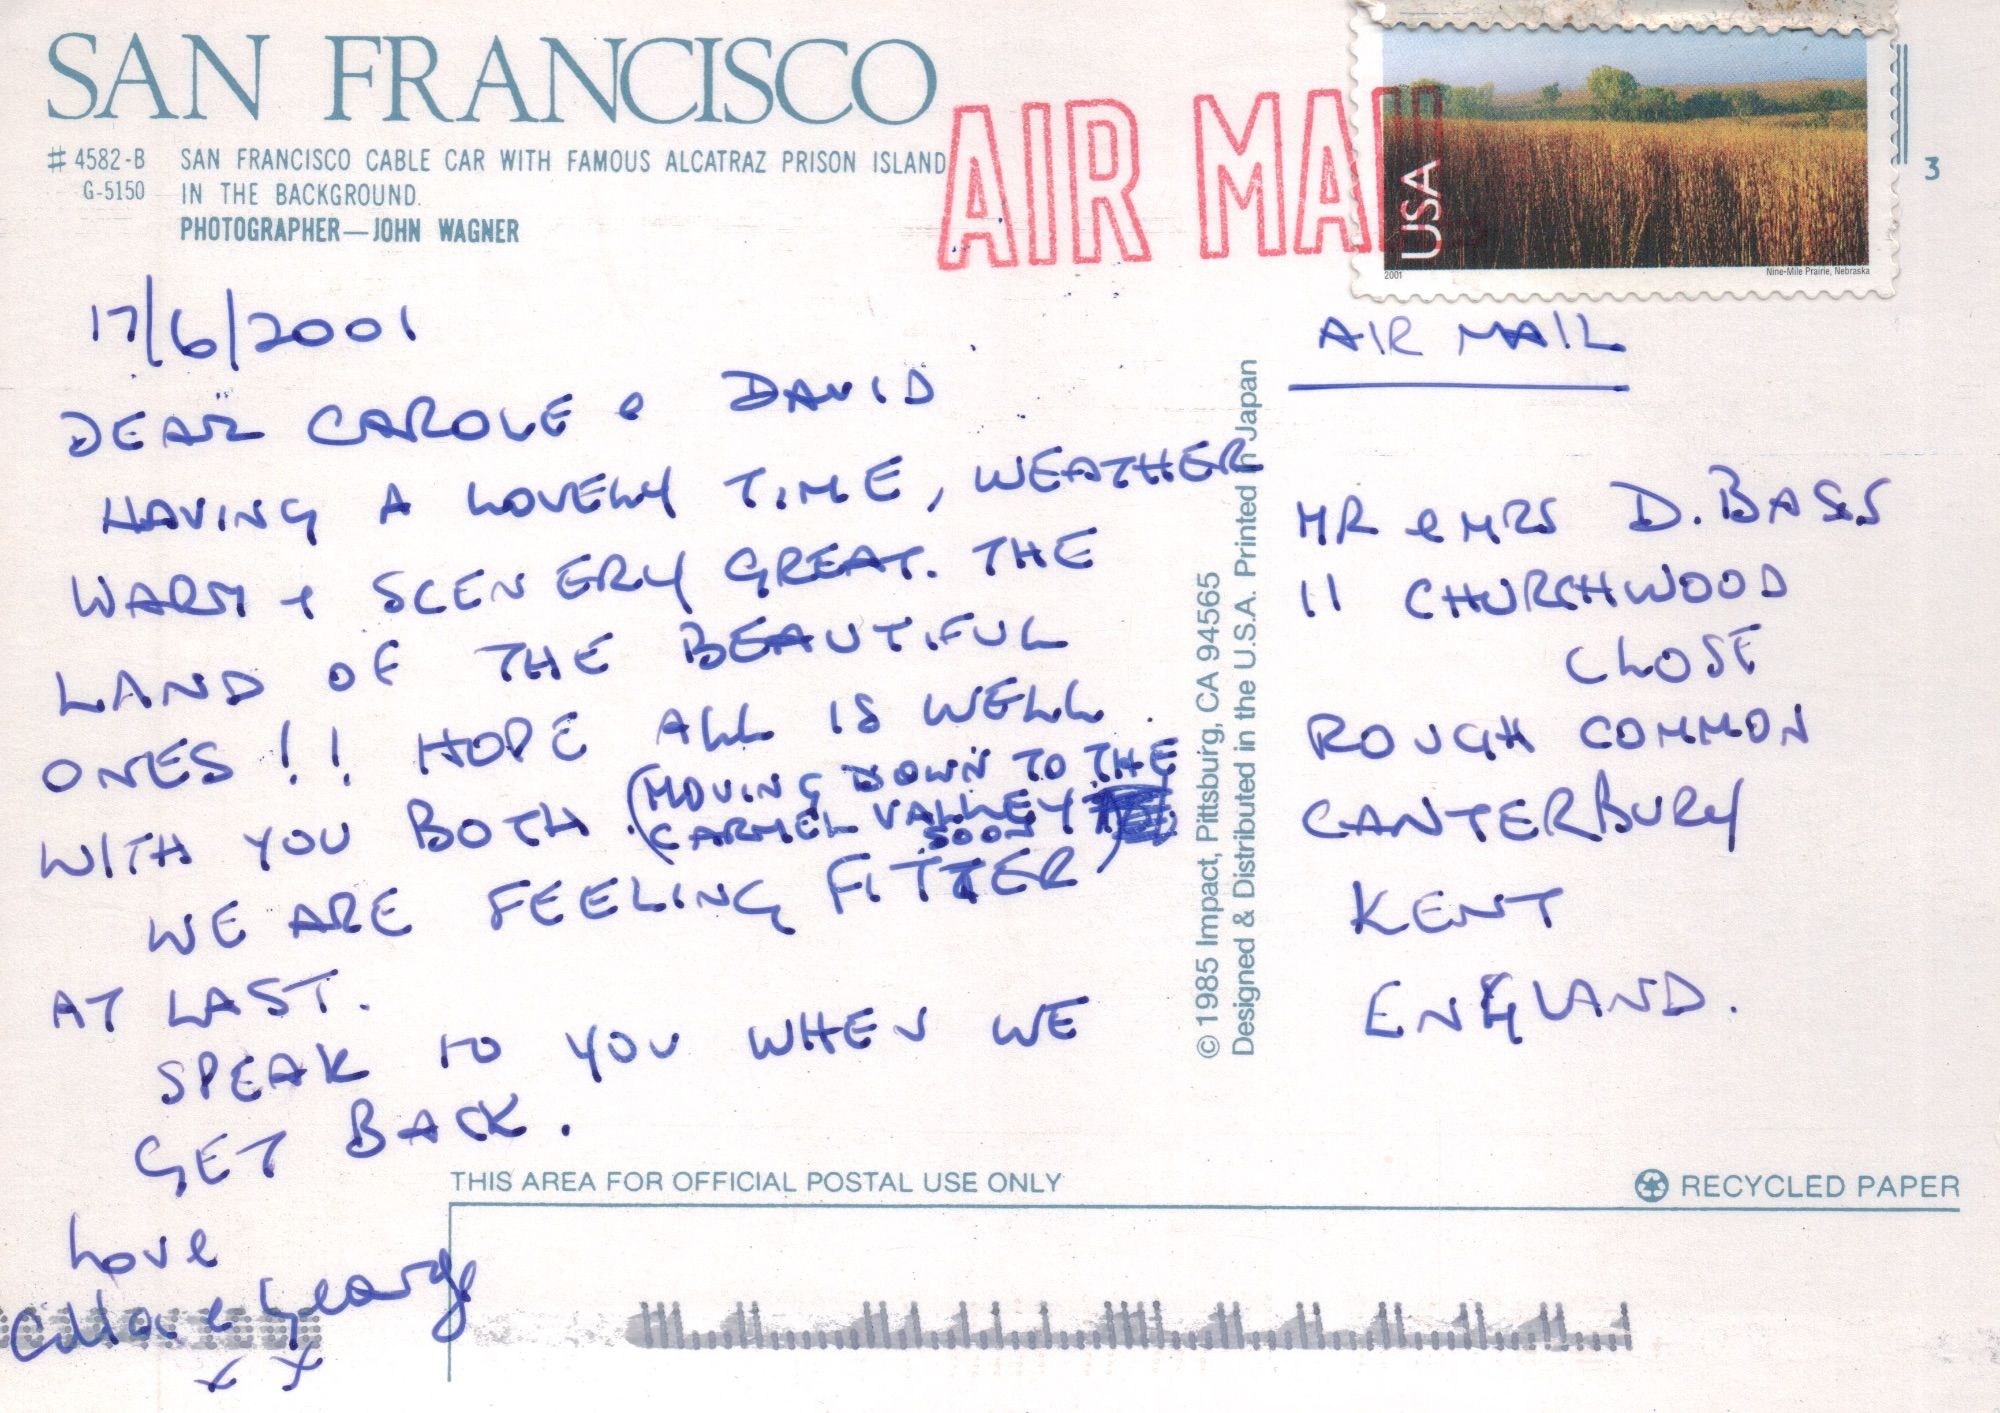 SAN FRANCISCO
# 4582-B SAN FRANCISCO CABLE CAR WITH FAMOUS ALCATRAZ PRISON ISLAND
G-5150 IN THE BACKGROUND.
PHOTOGRAPHER—JOHN WAGNER
AIR MAIL
USA
2001 Nine-Mile Prairie, Nebraska
3
17/6/2001
DEAR CAROLE & DAVID
HAVING A LOVELY TIME, WEATHER
WARM + SCENERY GREAT. THE
LAND OF THE BEAUTIFUL
ONES!! HOPE ALL IS WELL
WITH YOU BOTH. (MOVING DOWN TO THE
CARMEL VALLEY
SOON)
WE ARE FEELING FITTER
AT LAST.
SPEAK TO YOU WHEN WE
GET BACK.
Love
& George
x x
© 1985 Impact, Pittsburg, CA 94565
Designed & Distributed in the U.S.A. Printed in Japan
AIR MAIL
MR & MRS D. BASS
11 CHURCHWOOD
CLOSE
ROUGH COMMON
CANTERBURY
KENT
ENGLAND.
THIS AREA FOR OFFICIAL POSTAL USE ONLY
RECYCLED PAPER